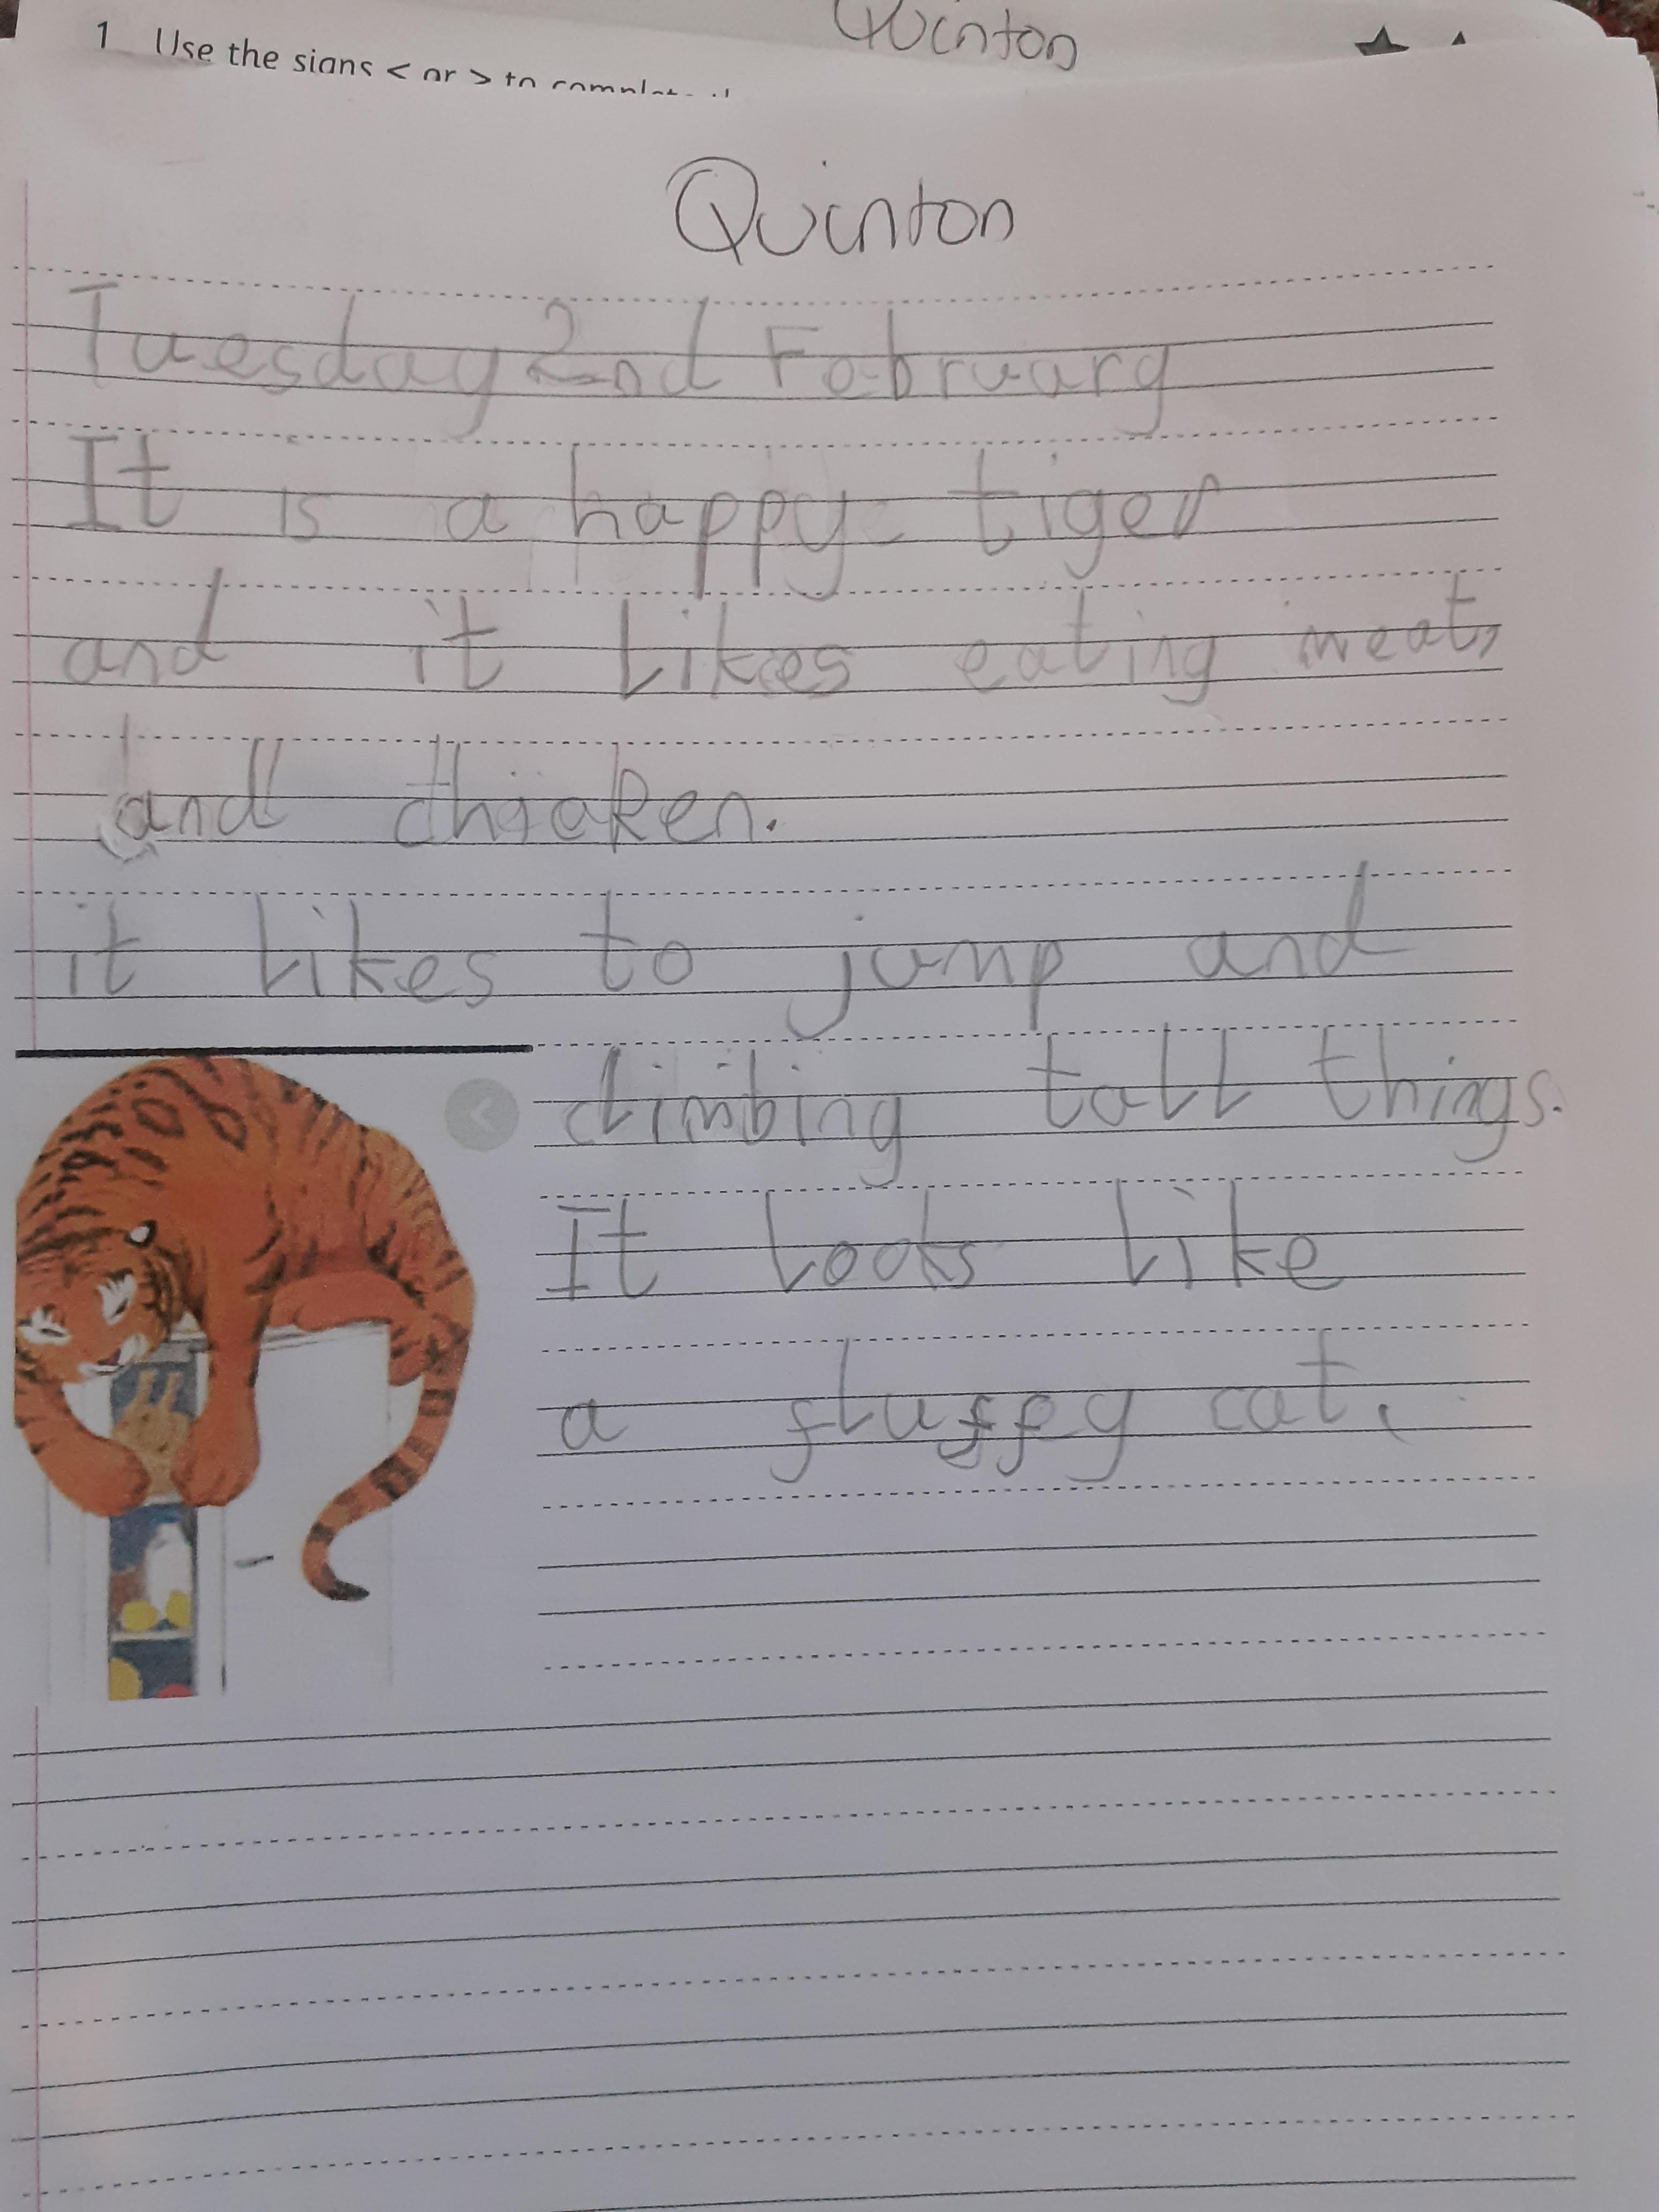 Quinton
1 Use the signs < or > to complete
Quinton
Tuesday 2nd February
It is a happy tiger
and it likes eating meat,
and chicken.
it likes to jump and
climbing tall things.
It looks like
a fluffy cat.